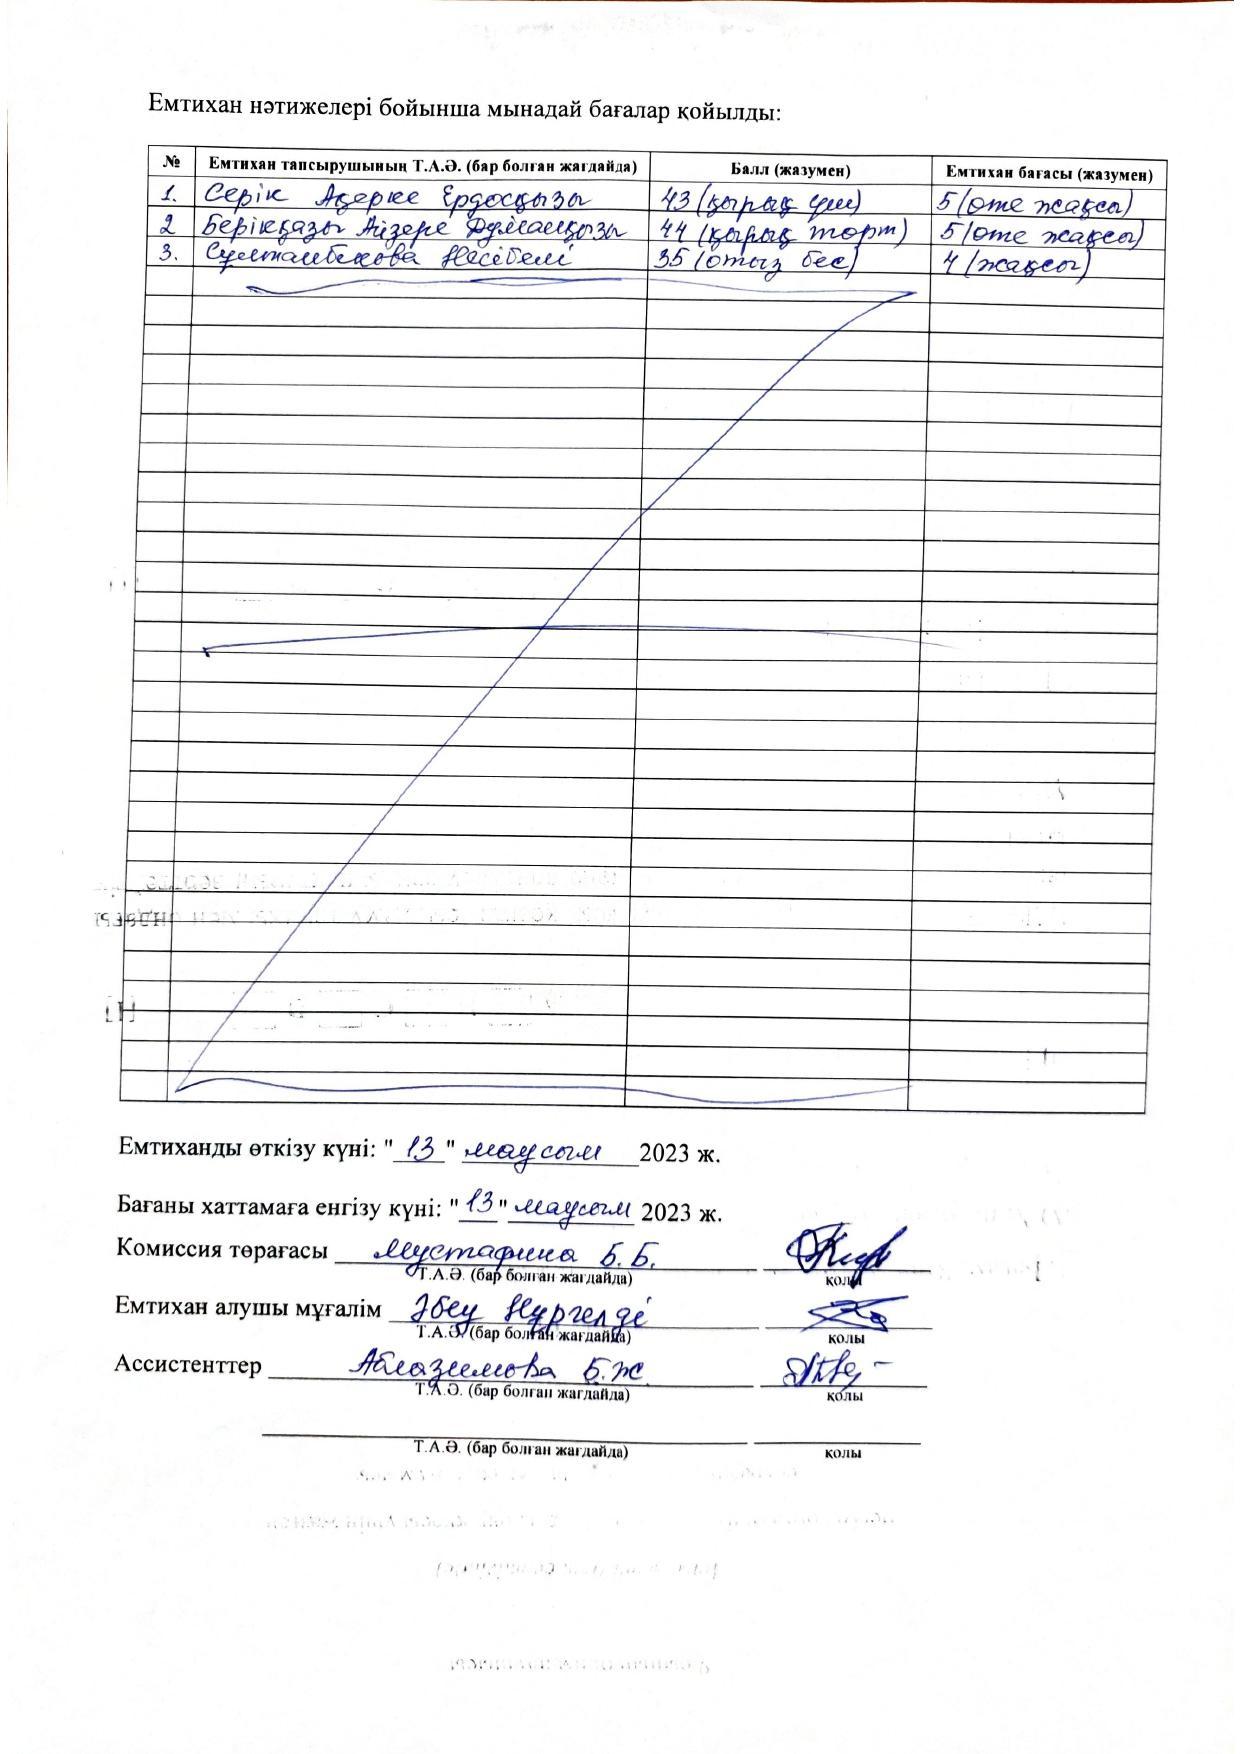 Емтихан нәтижелері бойынша мынадай бағалар қойылды:
№ Емтихан тапсырушының Т.А.Ә. (бар болған жағдайда) Балл (жазумен) Емтихан бағасы (жазумен)
1. Серік Ақерке Ердосқызы 43 (қырық үш) 5 (өте жақсы)
2 Берікқазы Айзере Думанқызы 44 (қырық төрт) 5 (өте жақсы)
3. Сұлтанбекова Несібелі 35 (отыз бес) 4 (жақсы)
Емтиханды өткізу күні: "13" маусым 2023 ж.
Бағаны хаттамаға енгізу күні: "13" маусым 2023 ж.
Комиссия төрағасы Мустафина Б.Б.
Т.А.Ә. (бар болған жағдайда) қолы
Емтихан алушы мұғалім Әбеу Нұргелді
Т.А.Ә. (бар болған жағдайда) қолы
Ассистенттер Аблазимова Б.Ж.
Т.А.Ә. (бар болған жағдайда) қолы
Т.А.Ә. (бар болған жағдайда) қолы